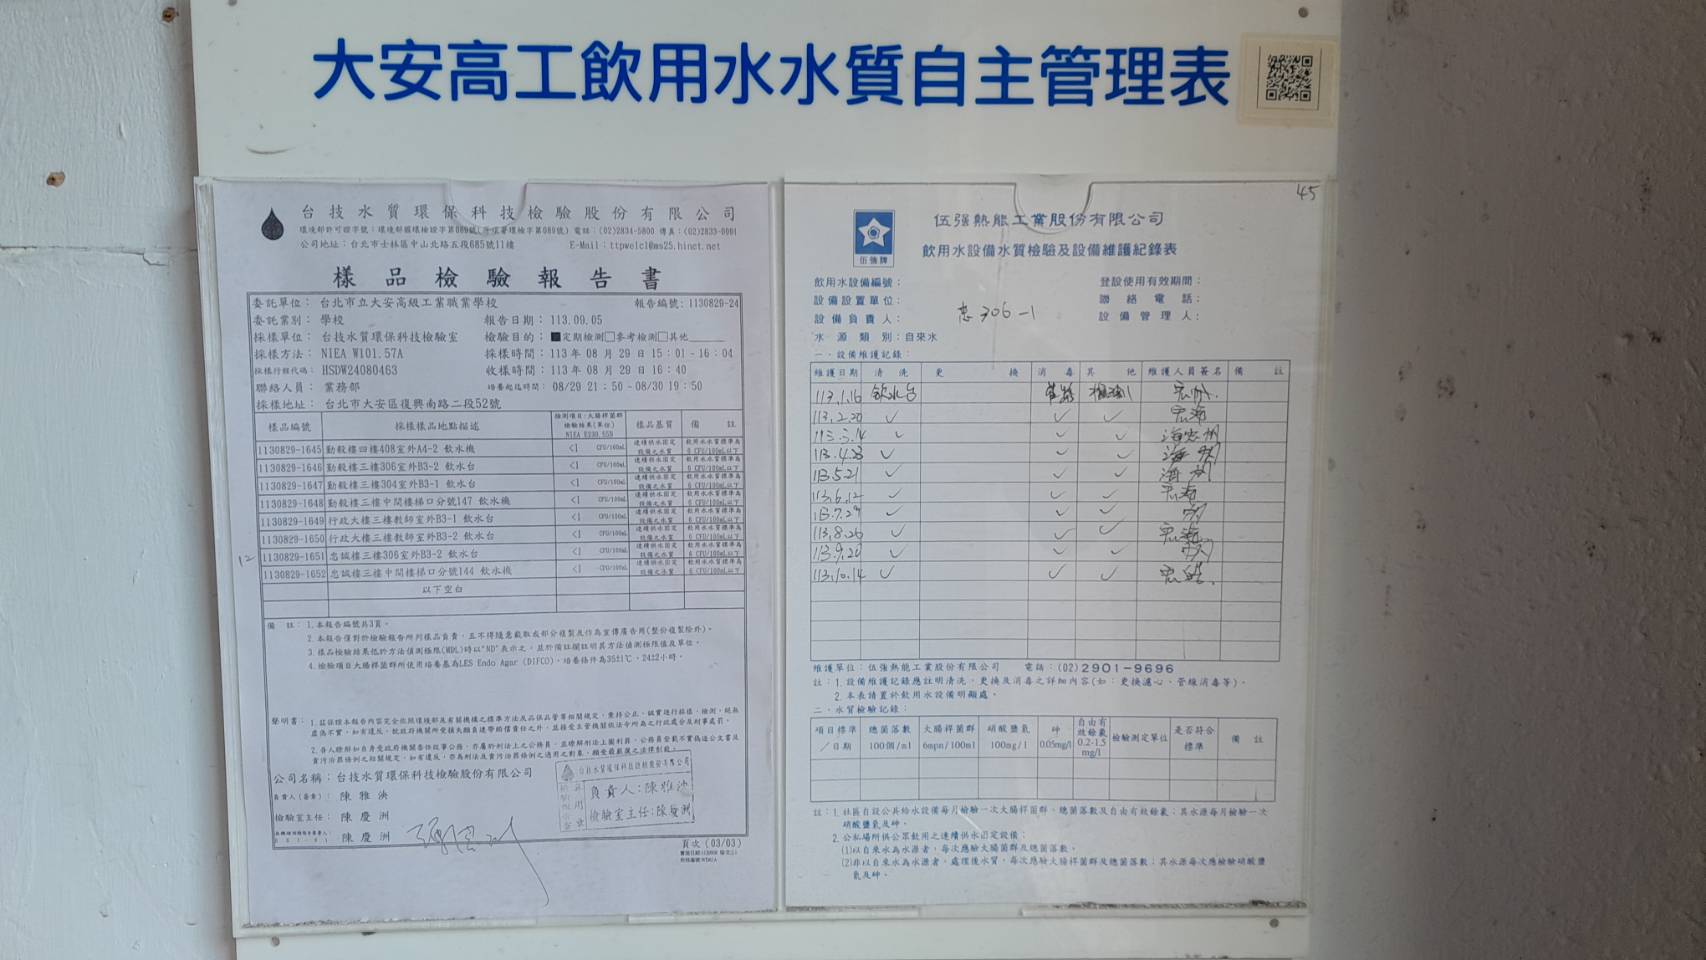 大安高工飲用水水質自主管理表
台技水質環保科技檢驗股份有限公司
公司地址：台北市士林區中山北路五段685號11樓 E-Mail：ttpwelcl@ms25.hinet.net
樣品檢驗報告書
委託單位： 台北市立大安高級工業職業學校 報告編號：1130829-24
委託業別： 學校 報告日期：113.09.05
採樣單位： 台技水質環保科技檢驗室 檢驗目的：■定期檢測□參考檢測□其他
採樣方法： NIEA W101.57A 採樣時間：113 年 08 月 29 日 15：01-16：04
採樣行程代碼： HSDW24080463 收樣時間：113 年 08 月 29 日 16：40
聯絡人員： 業務部 培養起迄時間： 08/29 21：50-08/30 19：50
採樣地址： 台北市大安區復興南路二段52號
樣品編號 採樣樣品地點描述 檢測項目：大腸桿菌群 檢驗結果(單位) NIEA E230.55B 樣品基質 備註
1130829-1645 勤毅樓四樓408室外A4-2 飲水機 <1 CFU/100mL 連續供水固定設備之水質 飲用水水質標準為6 CFU/100mL以下
1130829-1646 勤毅樓三樓306室外B3-2 飲水台 <1 CFU/100mL 連續供水固定設備之水質 飲用水水質標準為6 CFU/100mL以下
1130829-1647 勤毅樓三樓304室外B3-1 飲水台 <1 CFU/100mL 連續供水固定設備之水質 飲用水水質標準為6 CFU/100mL以下
1130829-1648 勤毅樓三樓中間樓梯口分號147 飲水機 <1 CFU/100mL 連續供水固定設備之水質 飲用水水質標準為6 CFU/100mL以下
1130829-1649 行政大樓三樓教師室外B3-1 飲水台 <1 CFU/100mL 連續供水固定設備之水質 飲用水水質標準為6 CFU/100mL以下
1130829-1650 行政大樓三樓教師室外B3-2 飲水台 <1 CFU/100mL 連續供水固定設備之水質 飲用水水質標準為6 CFU/100mL以下
12 1130829-1651 忠誠樓三樓306室外B3-2 飲水台 <1 CFU/100mL 連續供水固定設備之水質 飲用水水質標準為6 CFU/100mL以下
1130829-1652 忠誠樓三樓中間樓梯口分號144 飲水機 <1 CFU/100mL 連續供水固定設備之水質 飲用水水質標準為6 CFU/100mL以下
以下空白
備 註：1.本報告編號共3頁。
2.本報告僅對於檢驗報告所列樣品負責，且不得隨意截取或部分複製及作為宣傳廣告用(整份複製除外)。
3.樣品檢驗結果低於方法偵測極限(MDL)時以"ND"表示之，並於備註欄註明其方法偵測極限值及單位。
4.檢驗項目大腸桿菌群所使用培養基為LES Endo Agar (DIFCO)，培養條件為35±1℃、24±2小時。
聲明書：
公司名稱：台技水質環保科技檢驗股份有限公司
負責人(簽章)： 陳雅泱
檢驗室主任： 陳慶洲
陳慶洲
負責人：陳雅泱
檢驗室主任：陳慶洲
頁次（03/03）
45
伍強牌
伍強熱能工業股份有限公司
飲用水設備水質檢驗及設備維護紀錄表
飲用水設備編號： 登設使用有效期間：
設備設置單位： 聯絡電話：
設備負責人： 忠306-1 設備管理人：
水源類別：自來水
一、設備維護記錄：
維護日期 清洗 更換 消毒 其他 維護人員簽名 備註
113.1.16 飲水台
113.2.20 ✓ ✓ ✓
113.3.14 ✓ ✓ ✓
113.4.23 ✓ ✓ ✓
113.5.21 ✓ ✓ ✓
113.6.12 ✓ ✓ ✓
✓ ✓ ✓
113.8.26 ✓ ✓ ✓
113.9.20 ✓ ✓ ✓
113.10.14 ✓ ✓ ✓
維護單位：伍強熱能工業股份有限公司 電話：(02)2901-9696
註：1.設備維護記錄應註明清洗、更換及消毒之詳細內容(如：更換濾心、管線消毒等)。
2.本表請置於飲用水設備明顯處。
二、水質檢驗記錄：
項目標準／日期 總菌落數 100個/ml 大腸桿菌群 6mpn/100ml 硝酸鹽氮 100mg/l 砷 0.05mg/l 自由有效餘氯 0.2-1.5 mg/l 檢驗測定單位 是否符合標準 備註
註：1.社區自設公共給水設備每月檢驗一次大腸桿菌群、總菌落數及自由有效餘氯；其水源每月檢驗一次
硝酸鹽氮及砷。
2.公私場所供公眾飲用之連續供水固定設備：
(1)以自來水為水源者，每次應驗大腸菌群及總菌落數。
(2)非以自來水為水源者，處理後水質，每次應驗大腸桿菌群及總菌落數；其水源每次應檢驗硝酸鹽
氮及砷。